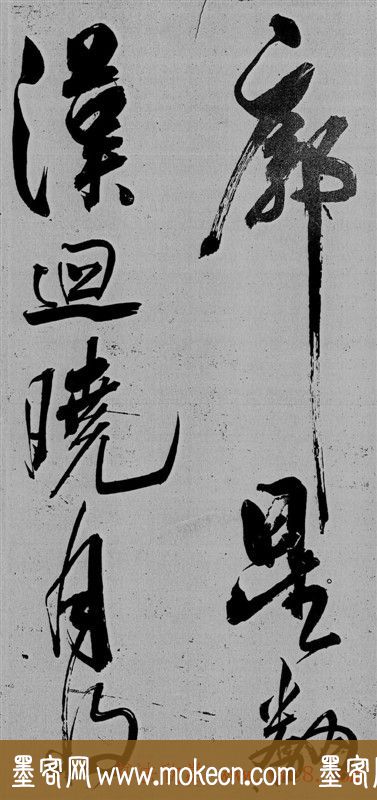 廓星
漢迴曉月
墨客网 www.mokecn.com 墨客网